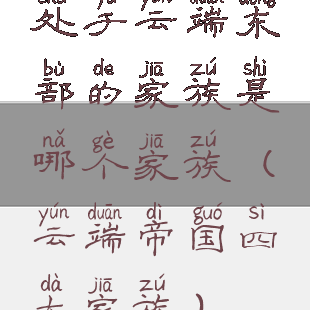 chù yú yún duān dōng
处于云端东
bù de jiā zú shì
部的家族是
nǎ gè jiā zú
哪个家族（
yún duān dì guó sì
云端帝国四
dà jiā zú
大家族）